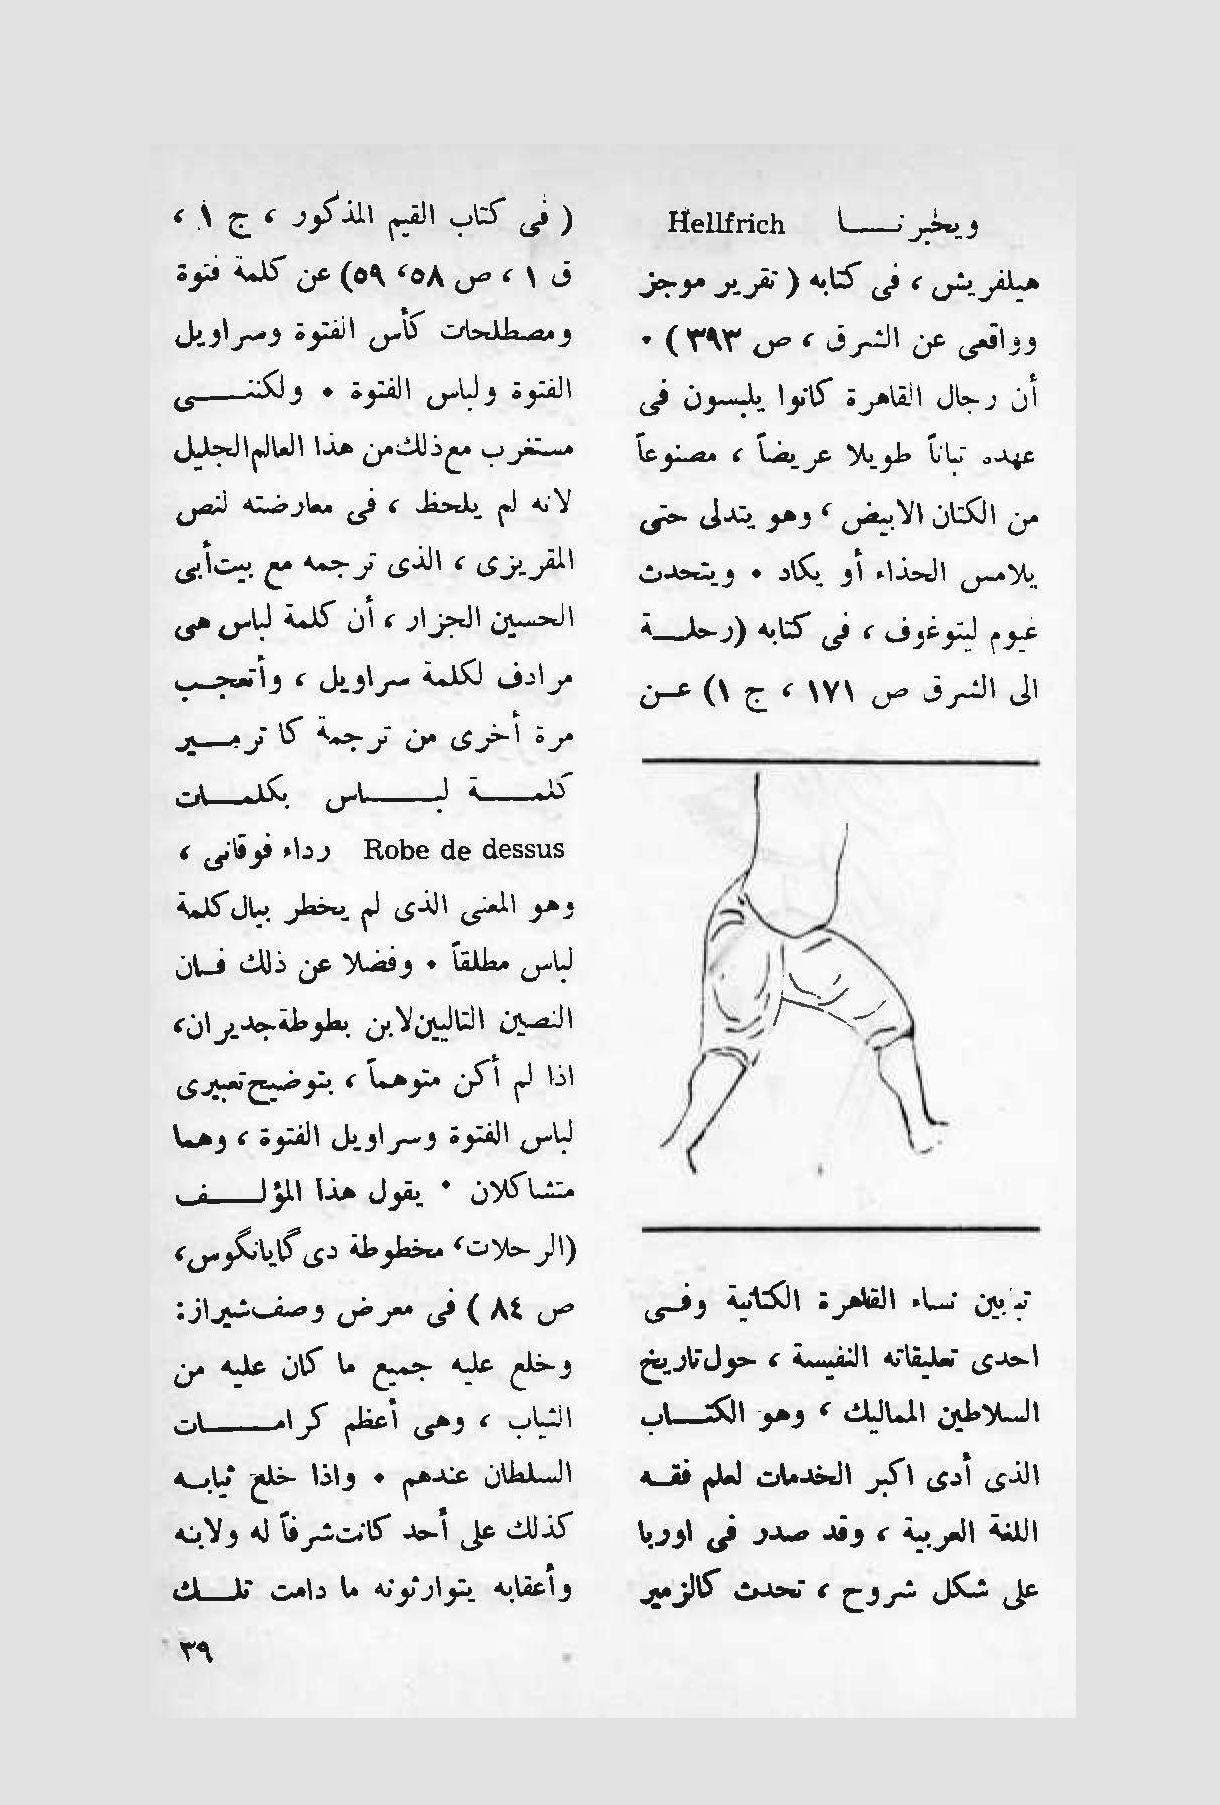 ويخبرنــا Hellfrich
هيلفريش ، فى كتابه ( تقرير موجز
وواقعى عن الشرق ، ص ٣٩٣ ) ٠
أن رجال القاهرة كانوا يلبسون فى
عهده تباناً طويلا عريضاً ، مصنوعاً
من الكتان الابيض ، وهو يتدلى حتى
يلامس الحذاء أو يكاد ٠ ويتحدث
غيوم ليتوغوف ، فى كتابه (رحلــة
الى الشرق ص ١٧١ ، ج ١) عـن
تبابين نساء القاهرة الكتانية وفـى
احدى تعليقاته النفيسة ، حول تاريخ
السلاطين المماليك ، وهو الكتــاب
الذى أدى اكبر الخدمات لعلم فقـه
اللغة العربية ، وقد صدر فى اوربا
على شكل شروح ، تحدث كالزمير
( فى كتاب القيم المذكور ، ج ١ ،
ق ١ ، ص ٥٨، ٥٩) عن كلمة فتوة
ومصطلحات كأس الفتوة وسراويل
الفتوة ولباس الفتوة ٠ ولكننــى
مستغرب مع ذلك من هذا العالم الجليل
لانه لم يلحظ ، فى معارضته لنص
المقريزى ، الذى ترجمه مع بيت أبى
الحسين الجزار ، أن كلمة لباس هى
مرادف لكلمة سراويل ، وأتعجـب
مرة أخرى من ترجمة كا ترمــير
كلمــة لبــاس بكلمــات
Robe de dessus رداء فوقانى ،
وهو المعنى الذى لم يخطر ببال كلمة
لباس مطلقاً ٠ وفضلا عن ذلك فـان
النصين التاليين لابن بطوطة جديران،
اذا لم أكن متوهماً ، بتوضيح تعبيرى
لباس الفتوة وسراويل الفتوة ، وهما
متشاكلان ٠ يقول هذا المؤلــف
(الرحلات، مخطوطة دى گايانگوس،
ص ٨٤ ) فى معرض وصف شيراز:
وخلع عليه جميع ما كان عليه من
الثياب ، وهى أعظم كرامــات
السلطان عندهم ٠ واذا خلع ثيابـه
كذلك على أحد كانت شرفاً له ولابنه
وأعقابه يتوارثونه ما دامت تلــك
٣٩